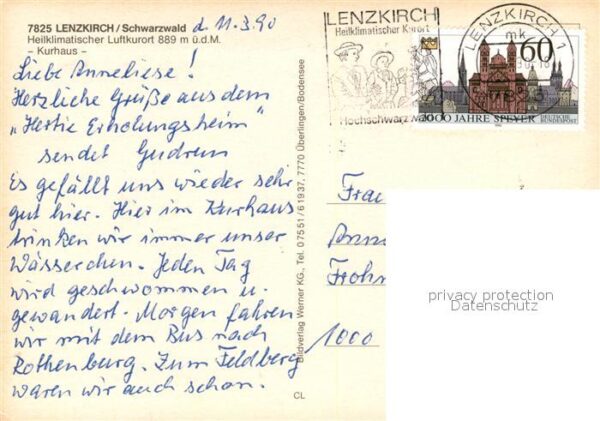 7825 LENZKIRCH / Schwarzwald
Heilklimatischer Luftkurort 889 m ü.d.M.
– Kurhaus –
d. 11.3.90
Liebe Anneliese!
Herzliche Grüße aus dem
„Hertie Erholungsheim"
sendet Gudrun
Es gefällt uns wieder sehr
gut hier. Hier im Kurhaus
trinken wir immer unser
Wässerchen. Jeden Tag
wird geschwommen u.
gewandert. Morgen fahren
wir mit dem Bus nach
Rothenburg. Zum Feldberg
waren wir auch schon.
Bildverlag Werner KG., Tel. 07551/61937, 7770 Überlingen/Bodensee
CL
LENZKIRCH
Heilklimatischer Kurort
Hochschwarzwald
LENZKIRCH 1
mk
7825
60
2000 JAHRE SPEYER
DEUTSCHE
BUNDESPOST
Frau
Anne
Frohn
1000
privacy protection
Datenschutz